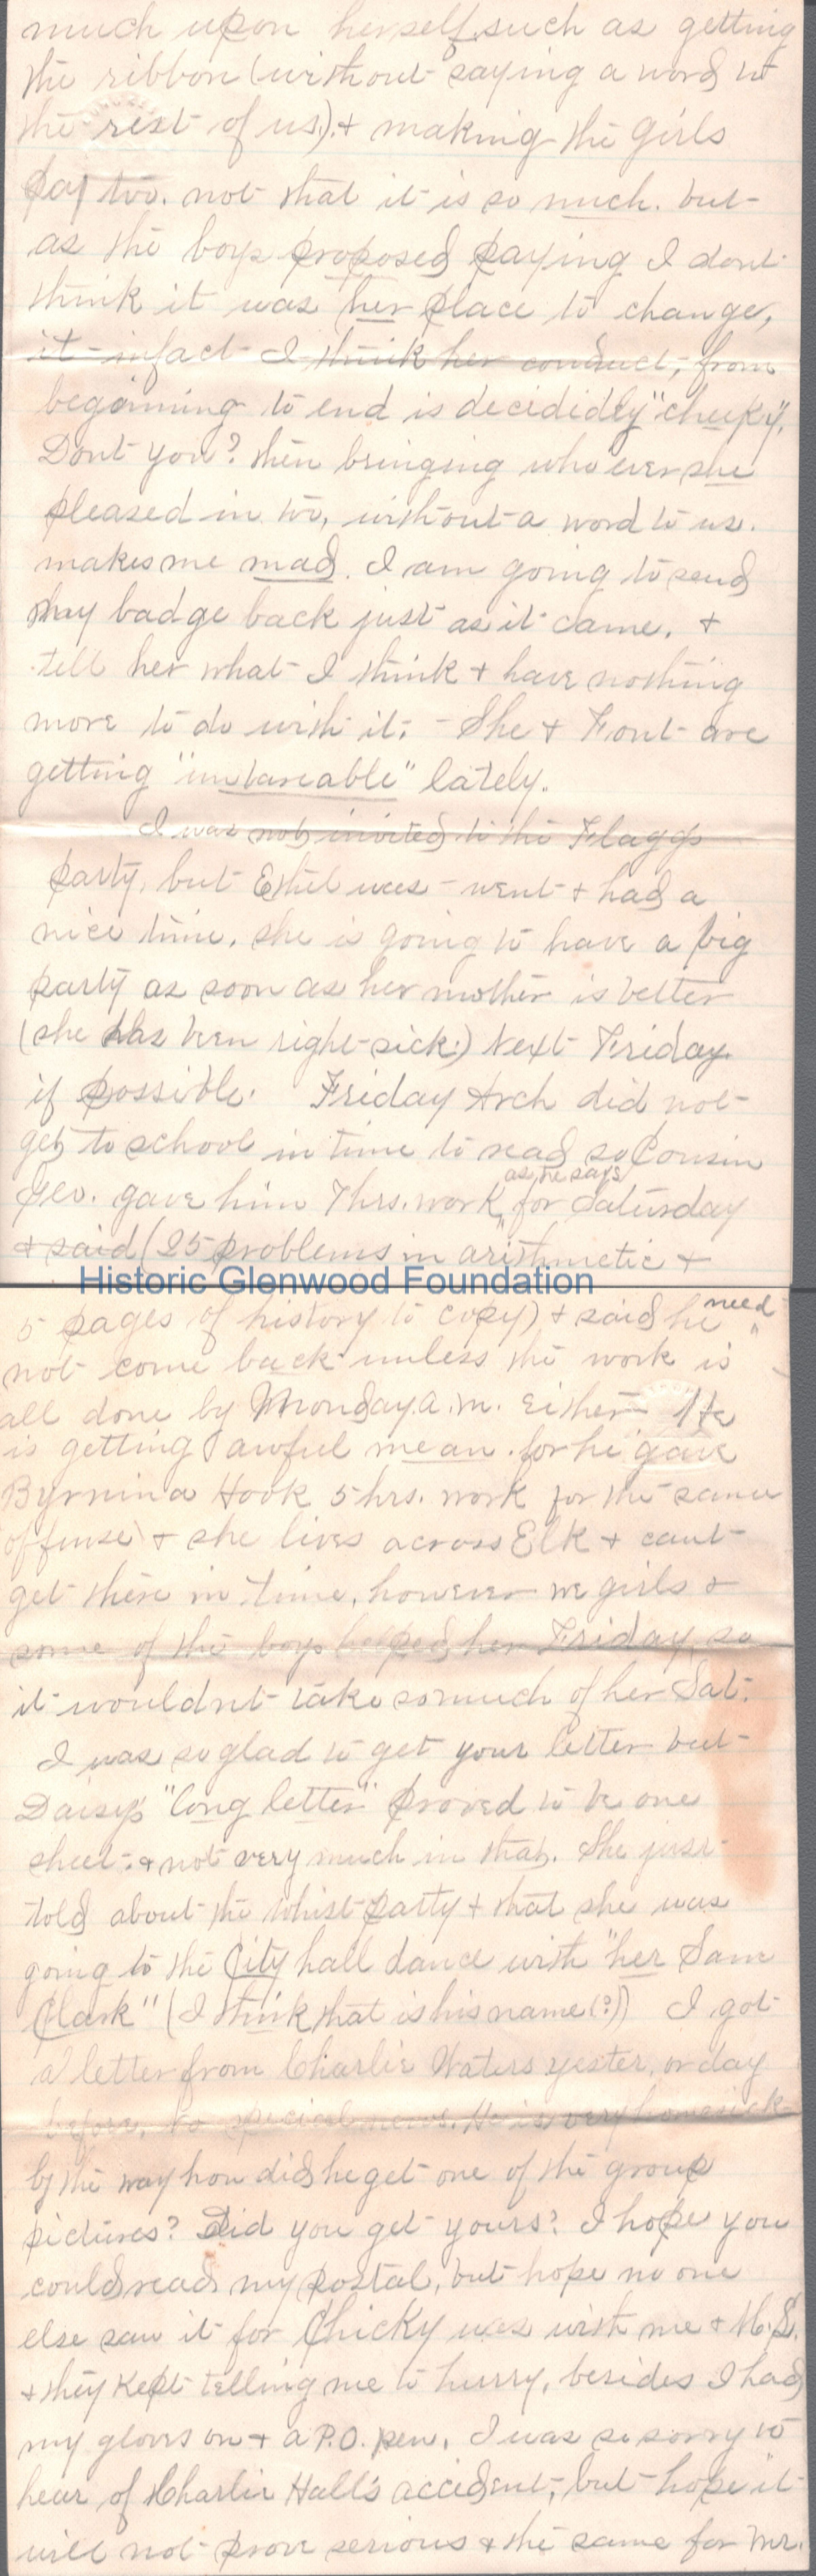 much upon herself, such as getting
the ribbon (without saying a word to
the rest of us). & making the girls
pay too. not that it is so much. but
as the boys proposed paying I dont
think it was her place to change,
it - infact - I think her conduct, from
beginning to end is decididly "cheeky".
Dont you? then bringing who ever she
pleased in too, without a word to us.
makes me mad. I am going to send
my badge back just as it came. &
tell her what I think & have nothing
more to do with it; - She & Font are
getting "unbareable" lately.
I was not invited to the Flaggs
party, but Ethel was - went & had a
nice time. she is going to have a big
party as soon as her mother is better
(she has been right sick.) Next Friday
if possible. Friday Arch did not
get to school in time to read so Cousin
as he says
Geo. gave him 7 hrs. work, for Saturday
& said (25 problems in arithmetic &
Historic Glenwood Foundation
need
5 pages of history to copy) & said he "
not come back unless the work is
all done by Monday a.m. either He
is getting awful mean. for he gave
Byrnina Hook 5 hrs. work for the same
offense & she lives across Elk & cant
get there in time, however we girls &
some of the boys helped her Friday, so
it wouldnt take so much of her Sat.
I was so glad to get your letter but
Daisy's "long letter" proved to be one
sheet - & not very much in that. She just
told about the whist party & that she was
going to the City hall dance with "her Sam
Clark" (I think that is his name(?)) I got
a letter from Charlie Waters yester. or day
before, no special news. He is very homesick
by the way how did he get one of the group
pictures? Did you get yours? I hope you
could read my postal, but hope no one
else saw it for Chicky was with me & M.S.
& they kept telling me to hurry, besides I had
my gloves on & a P.O. pen. I was so sorry to
hear of Charlie Hall's accident, but hope it
will not prove serious & the same for Mr.